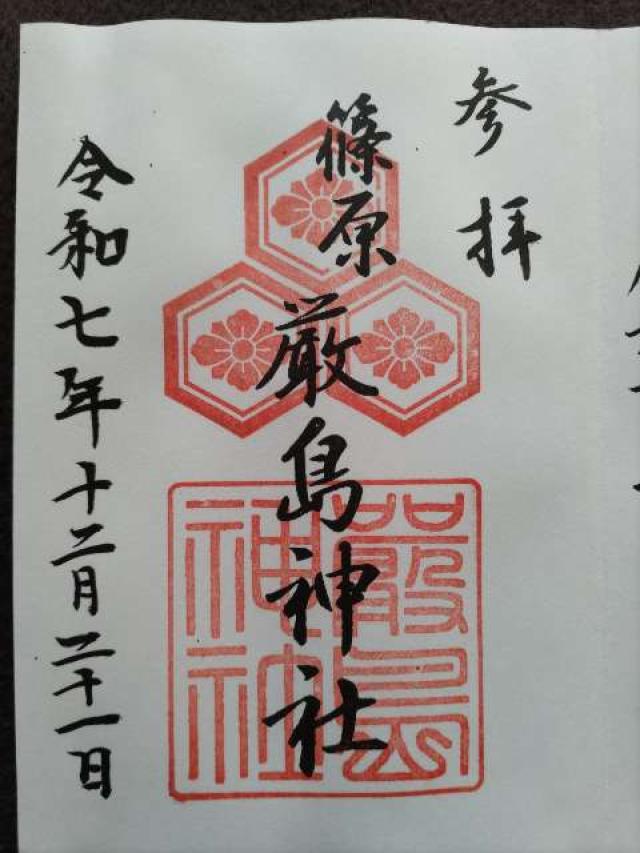 参拝
篠原厳島神社
嚴島
神社
令和七年十二月二十一日